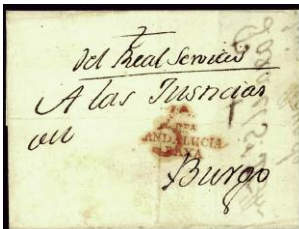 Del Real Servicio
A las Justicias
ANDALUCIA
BAXA
Burgo